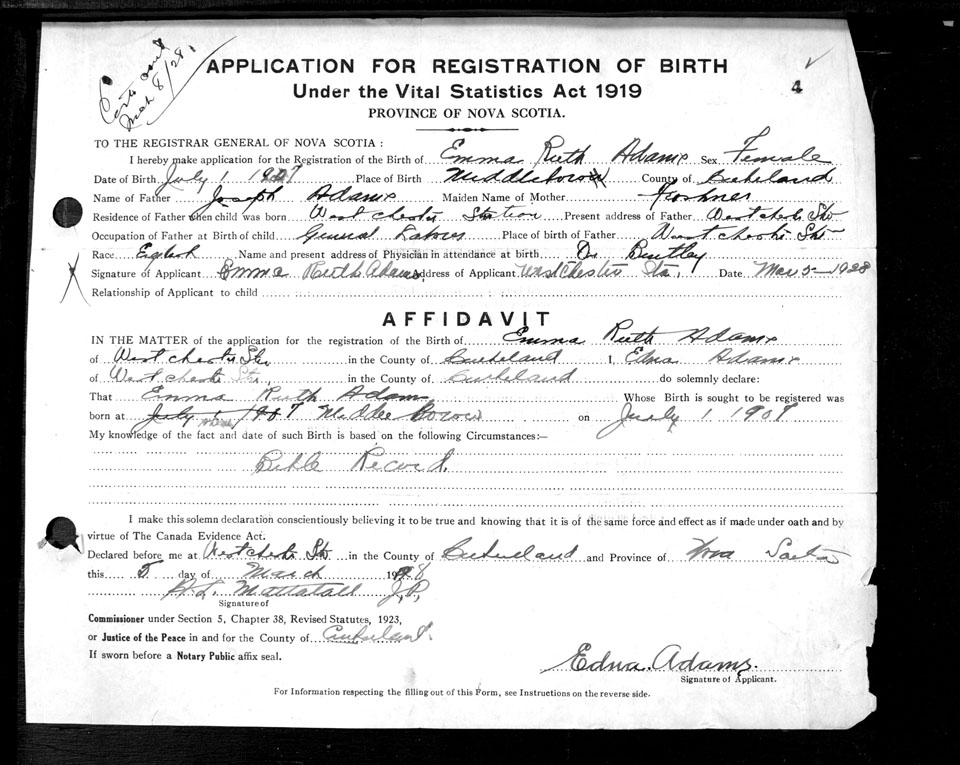 Certs sent
Mch 8/28.
APPLICATION FOR REGISTRATION OF BIRTH
4
Under the Vital Statistics Act 1919
PROVINCE OF NOVA SCOTIA.
TO THE REGISTRAR GENERAL OF NOVA SCOTIA :
I hereby make application for the Registration of the Birth of Emma Ruth Adams Sex Female
Date of Birth July 1 1907 Place of Birth Middleboro County of
Name of Father Joseph Adams Maiden Name of Mother
Residence of Father when child was born Westchester Station Present address of Father Westchester Sta
Occupation of Father at Birth of child General Labour Place of birth of Father Westchester Sta
Race English Name and present address of Physician in attendance at birth Dr Bentley
Signature of Applicant Emma Ruth Adams Address of Applicant Westchester Sta. Date Mar 5-1928
Relationship of Applicant to child
AFFIDAVIT
IN THE MATTER of the application for the registration of the Birth of Emma Ruth Adams
of Westchester Sta. in the County of I, Edna Adams
of Westchester Sta. in the County of do solemnly declare:
That Emma Ruth Adams Whose Birth is sought to be registered was
born at July 1 1907 on July 1 1907
My knowledge of the fact and date of such Birth is based on the following Circumstances:—
Bible Record.
I make this solemn declaration conscientiously believing it to be true and knowing that it is of the same force and effect as if made under oath and by
virtue of The Canada Evidence Act.
Declared before me at Westchester Sta in the County of and Province of Nova Scotia
this 5 day of March 1928
H.L. Mattatall J.P.
Signature of
Commissioner under Section 5, Chapter 38, Revised Statutes, 1923,
or Justice of the Peace in and for the County of
If sworn before a Notary Public affix seal.
Edna. Adams.
Signature of Applicant.
For Information respecting the filling out of this Form, see Instructions on the reverse side.